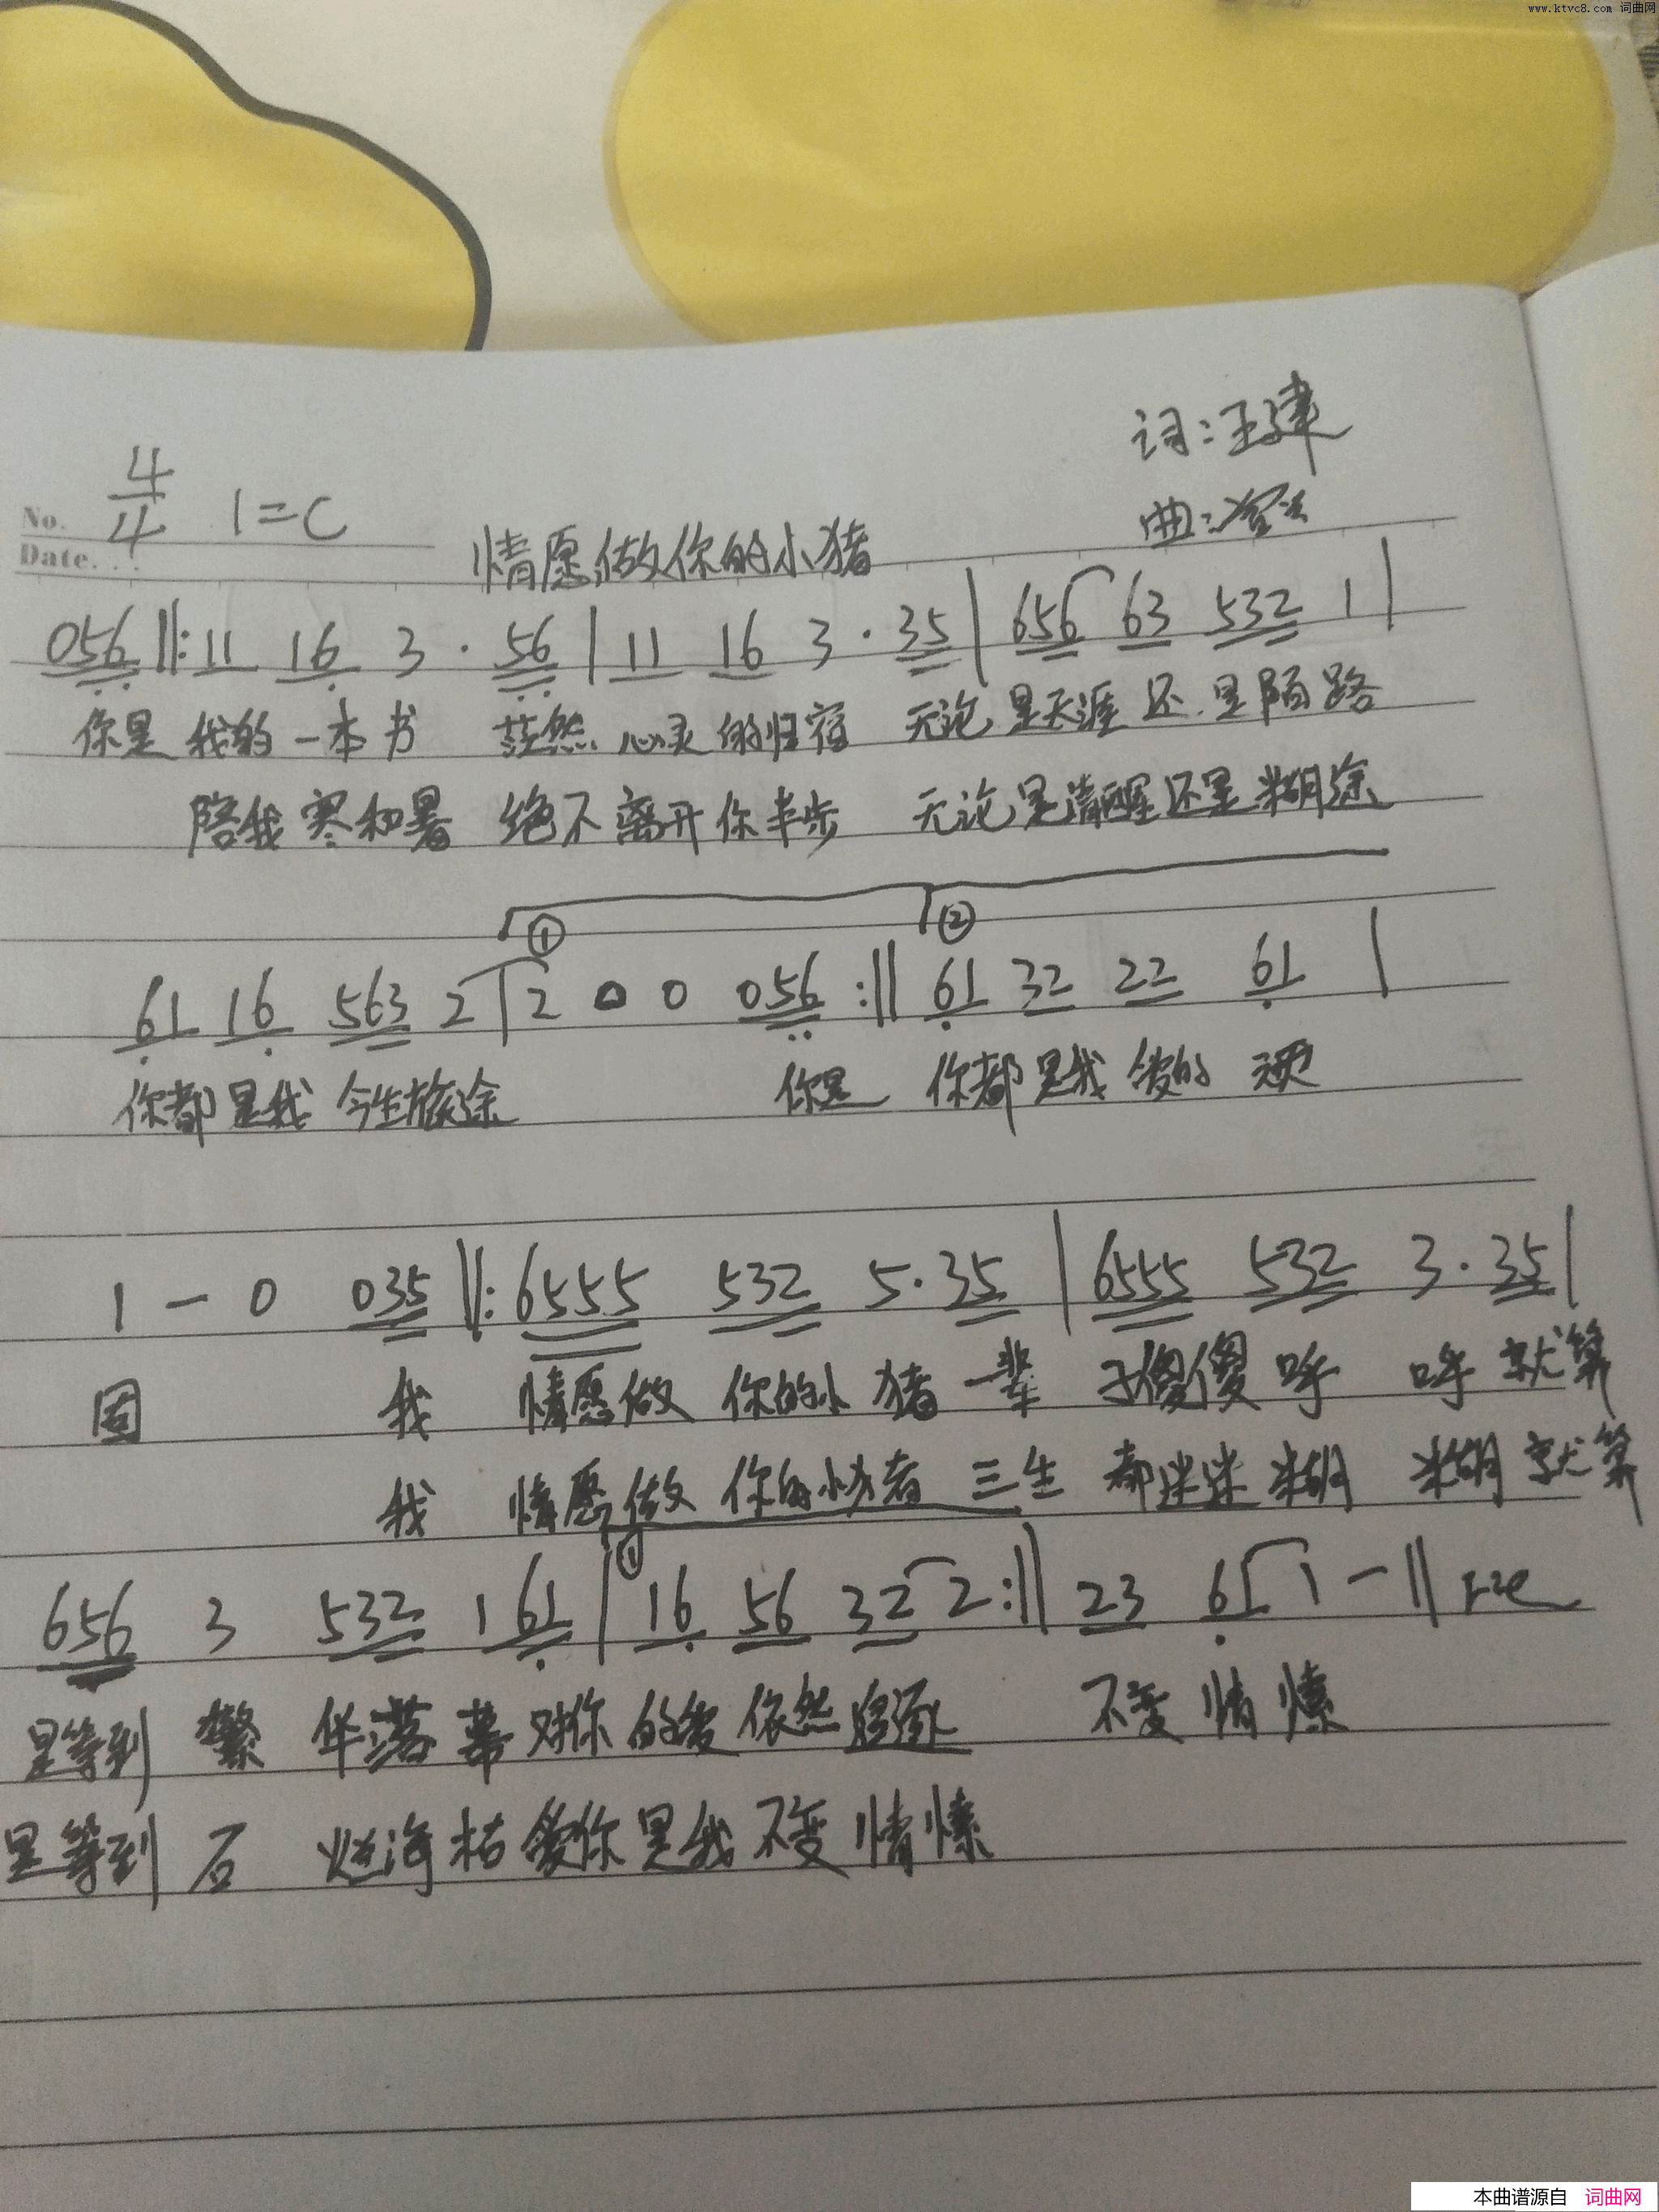 www.ktvc8.com 词曲网
词:王建
4/4 1=C
No.
曲:
Date.
情愿做你的小猪
056 ‖: 11 16 3 · 56 | 11 16 3 · 35 | 656 63 532 1 |
你是 我的一本书 茫然 心灵的归宿 无论是天涯还是陌路
陪我寒和暑 绝不离开你半步 无论是清醒还是糊涂
① ②
61 16 563 2 | 2 0 0 056 :‖ 61 32 22 61 |
你都是我今生旅途 你是 你都是我爱的 顽
1 - 0 035 ‖: 6555 532 5 · 35 | 6555 532 3 · 35 |
固 我 情愿做 你的小猪一辈 子傻傻呼 呼就算
我 情愿做 你的小猪 三生 都迷迷糊 糊就算
①
656 3 532 1 61 | 16 56 32 2 :‖ 23 61 1 - ‖
是等到 繁 华落幕对你的爱依然 不变情愫
是等到 石 烂海枯爱你是我不变情愫
本曲谱源自 词曲网